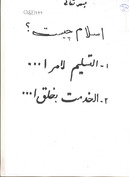 بسمه تعالی
اسلام چیست؟
۱- التسلیم لامر ا...
۲- الخدمت بخلق ا...